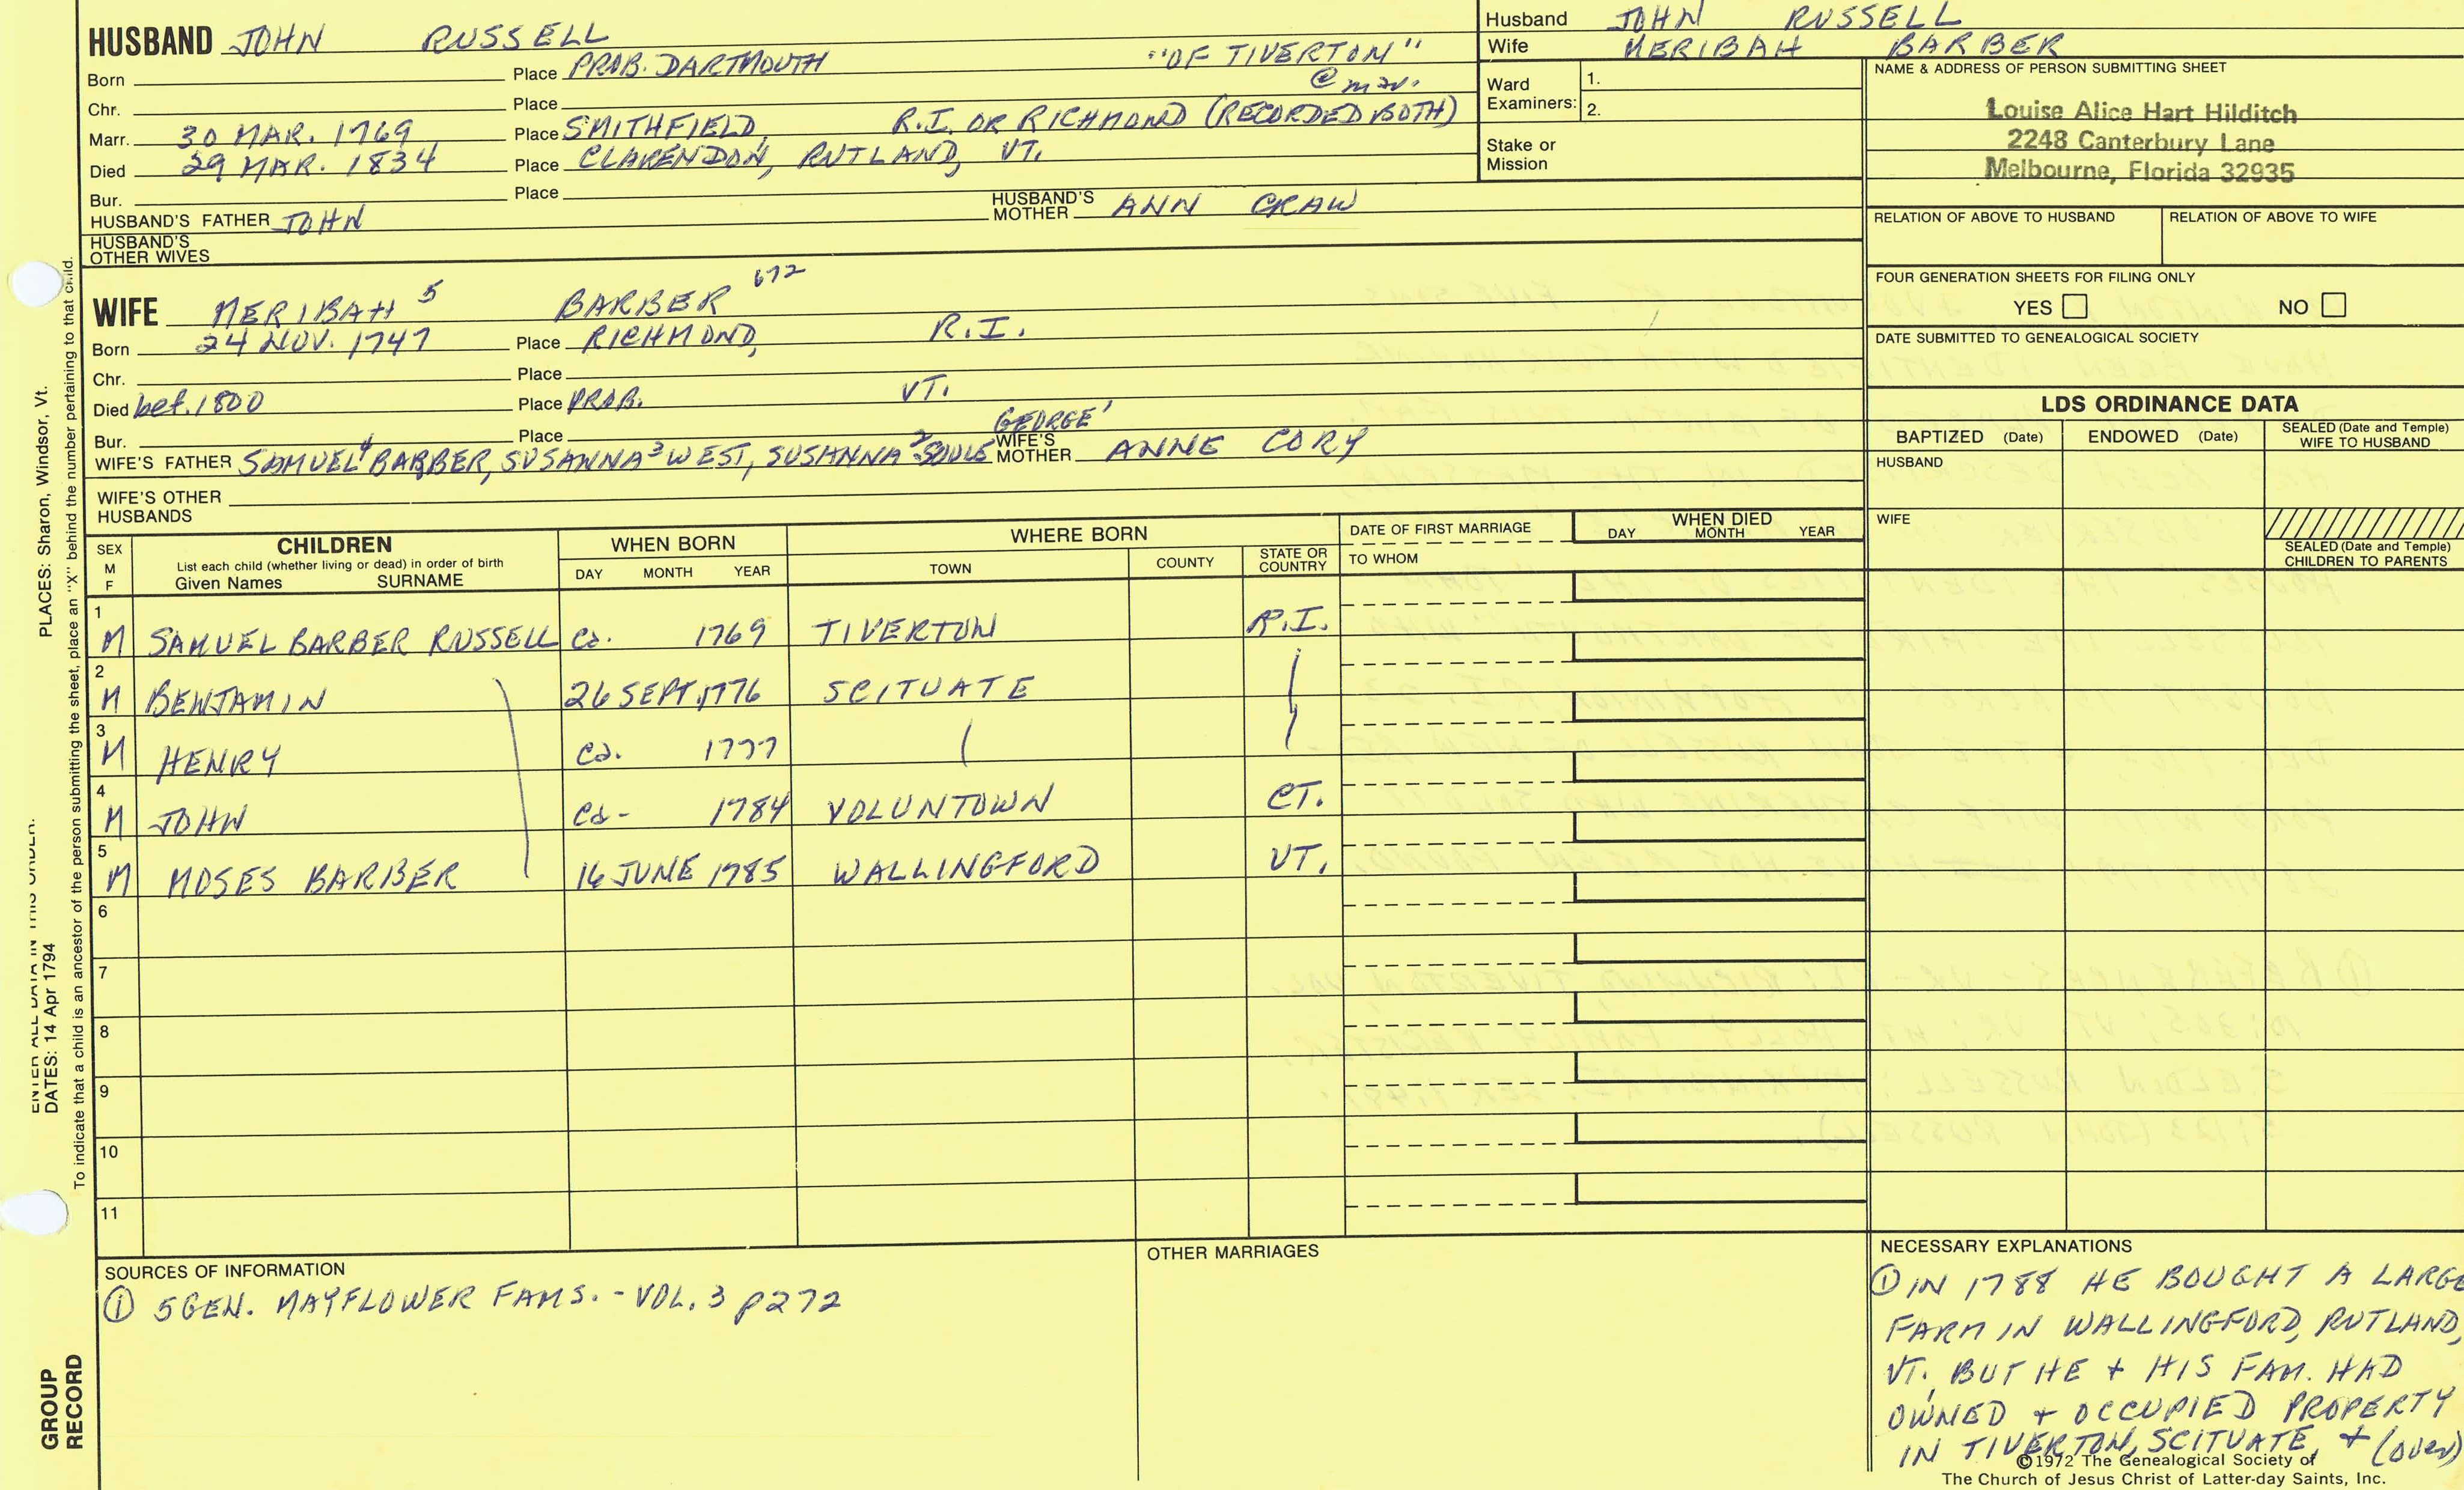 HUSBAND JOHN RUSSELL
Born Place PROB. DARTMOUTH "OF TIVERTON"
@ mar.
Chr. Place
Marr. 30 MAR. 1769 Place SMITHFIELD, R.I. OR RICHMOND (RECORDED BOTH)
Died 29 MAR. 1834 Place CLARENDON, RUTLAND, VT.
Bur. Place
HUSBAND'S FATHER JOHN HUSBAND'S MOTHER ANN CRAW
HUSBAND'S OTHER WIVES
WIFE MERIBAH 5 BARBER 672
Born 24 NOV. 1747 Place RICHMOND, R.I.
Chr. Place
Died bef. 1800 Place PROB. VT.
Bur. Place GEORGE 1
WIFE'S FATHER SAMUEL 4 BARBER, SUSANNA 3 WEST, SUSANNA 2 SOULE WIFE'S MOTHER ANNE CORY
WIFE'S OTHER HUSBANDS
Husband JOHN RUSSELL
Wife MERIBAH BARBER
Ward Examiners: 1.
2.
Stake or Mission
NAME & ADDRESS OF PERSON SUBMITTING SHEET
Louise Alice Hart Hilditch
2248 Canterbury Lane
Melbourne, Florida 32935
RELATION OF ABOVE TO HUSBAND RELATION OF ABOVE TO WIFE
FOUR GENERATION SHEETS FOR FILING ONLY
YES NO
DATE SUBMITTED TO GENEALOGICAL SOCIETY
LDS ORDINANCE DATA
BAPTIZED (Date) ENDOWED (Date) SEALED (Date and Temple) WIFE TO HUSBAND
HUSBAND
WIFE
SEALED (Date and Temple) CHILDREN TO PARENTS
SEX M F CHILDREN WHEN BORN WHERE BORN DATE OF FIRST MARRIAGE WHEN DIED
List each child (whether living or dead) in order of birth
Given Names SURNAME DAY MONTH YEAR TOWN COUNTY STATE OR COUNTRY TO WHOM DAY MONTH YEAR
1 M SAMUEL BARBER RUSSELL ca. 1769 TIVERTON R.I.
2 M BENJAMIN 26 SEPT. 1776 SCITUATE
3 M HENRY ca. 1777
4 M JOHN ca- 1784 VOLUNTOWN CT.
5 M MOSES BARBER 16 JUNE 1785 WALLINGFORD VT.
6
7
8
9
10
11
SOURCES OF INFORMATION
① 5 GEN. MAYFLOWER FAMS. - VOL. 3 p272
OTHER MARRIAGES
NECESSARY EXPLANATIONS
① IN 1788 HE BOUGHT A LARGE
FARM IN WALLINGFORD, RUTLAND,
VT. BUT HE + HIS FAM. HAD
OWNED + OCCUPIED PROPERTY
IN TIVERTON, SCITUATE, + (over)
©1972 The Genealogical Society of
The Church of Jesus Christ of Latter-day Saints, Inc.
PLACES: Sharon, Windsor, Vt.
ENTER ALL DATA IN THIS ORDER:
DATES: 14 Apr 1794
To indicate that a child is an ancestor of the person submitting the sheet, place an "X" behind the number pertaining to that child.
GROUP RECORD